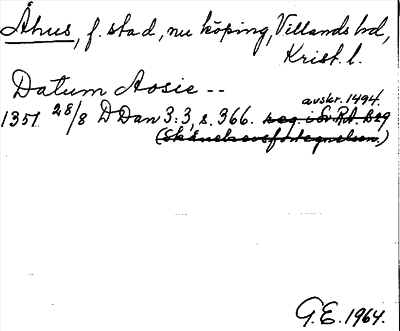 Åhus, f. stad, nu köping, Villands hd,
Krist. l.
Datum Aosie --
avskr. 1494.
1351 28/8 D Dan 3:3, s. 366. reg. i Sv. R.A. beg
(Skånebrevsförtegnelsen.)
G.E. 1964.